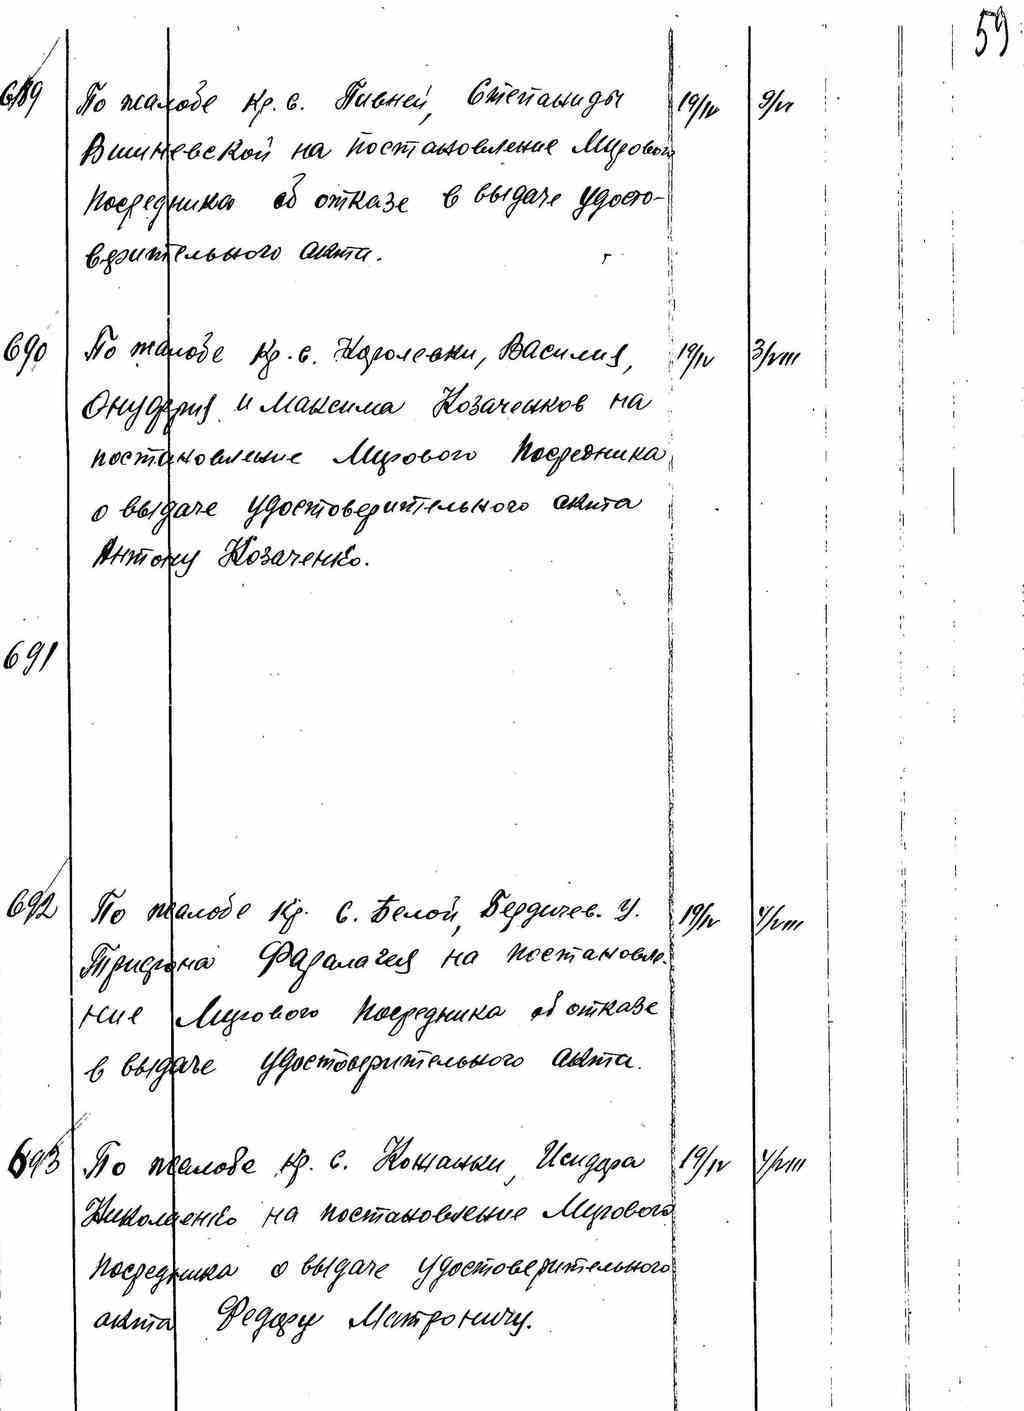 59
689 По жалобе кр. с. Пивней, Степаниды 19/IV 9/VI
Вишневской на постановление Мирового
Посредника об отказе в выдаче удосто-
верительного акта.
690 По жалобе кр. с. Королевки, Василия, 19/IV 3/VIII
Онуфрия и Максима Козаченков на
постановление Мирового Посредника
о выдаче удостоверительного акта
Антону Козаченко.
691
692 По жалобе кр. с. Белой, Бердичев. у. 19/IV 4/VIII
Трифона на постановле-
ние Мирового Посредника об отказе
в выдаче удостоверительного акта.
693 По жалобе кр. с. Кожанки, Исидора 19/IV 4/VIII
Николаенко на постановление Мирового
Посредника о выдаче удостоверительного
акта Федору Матроничу.